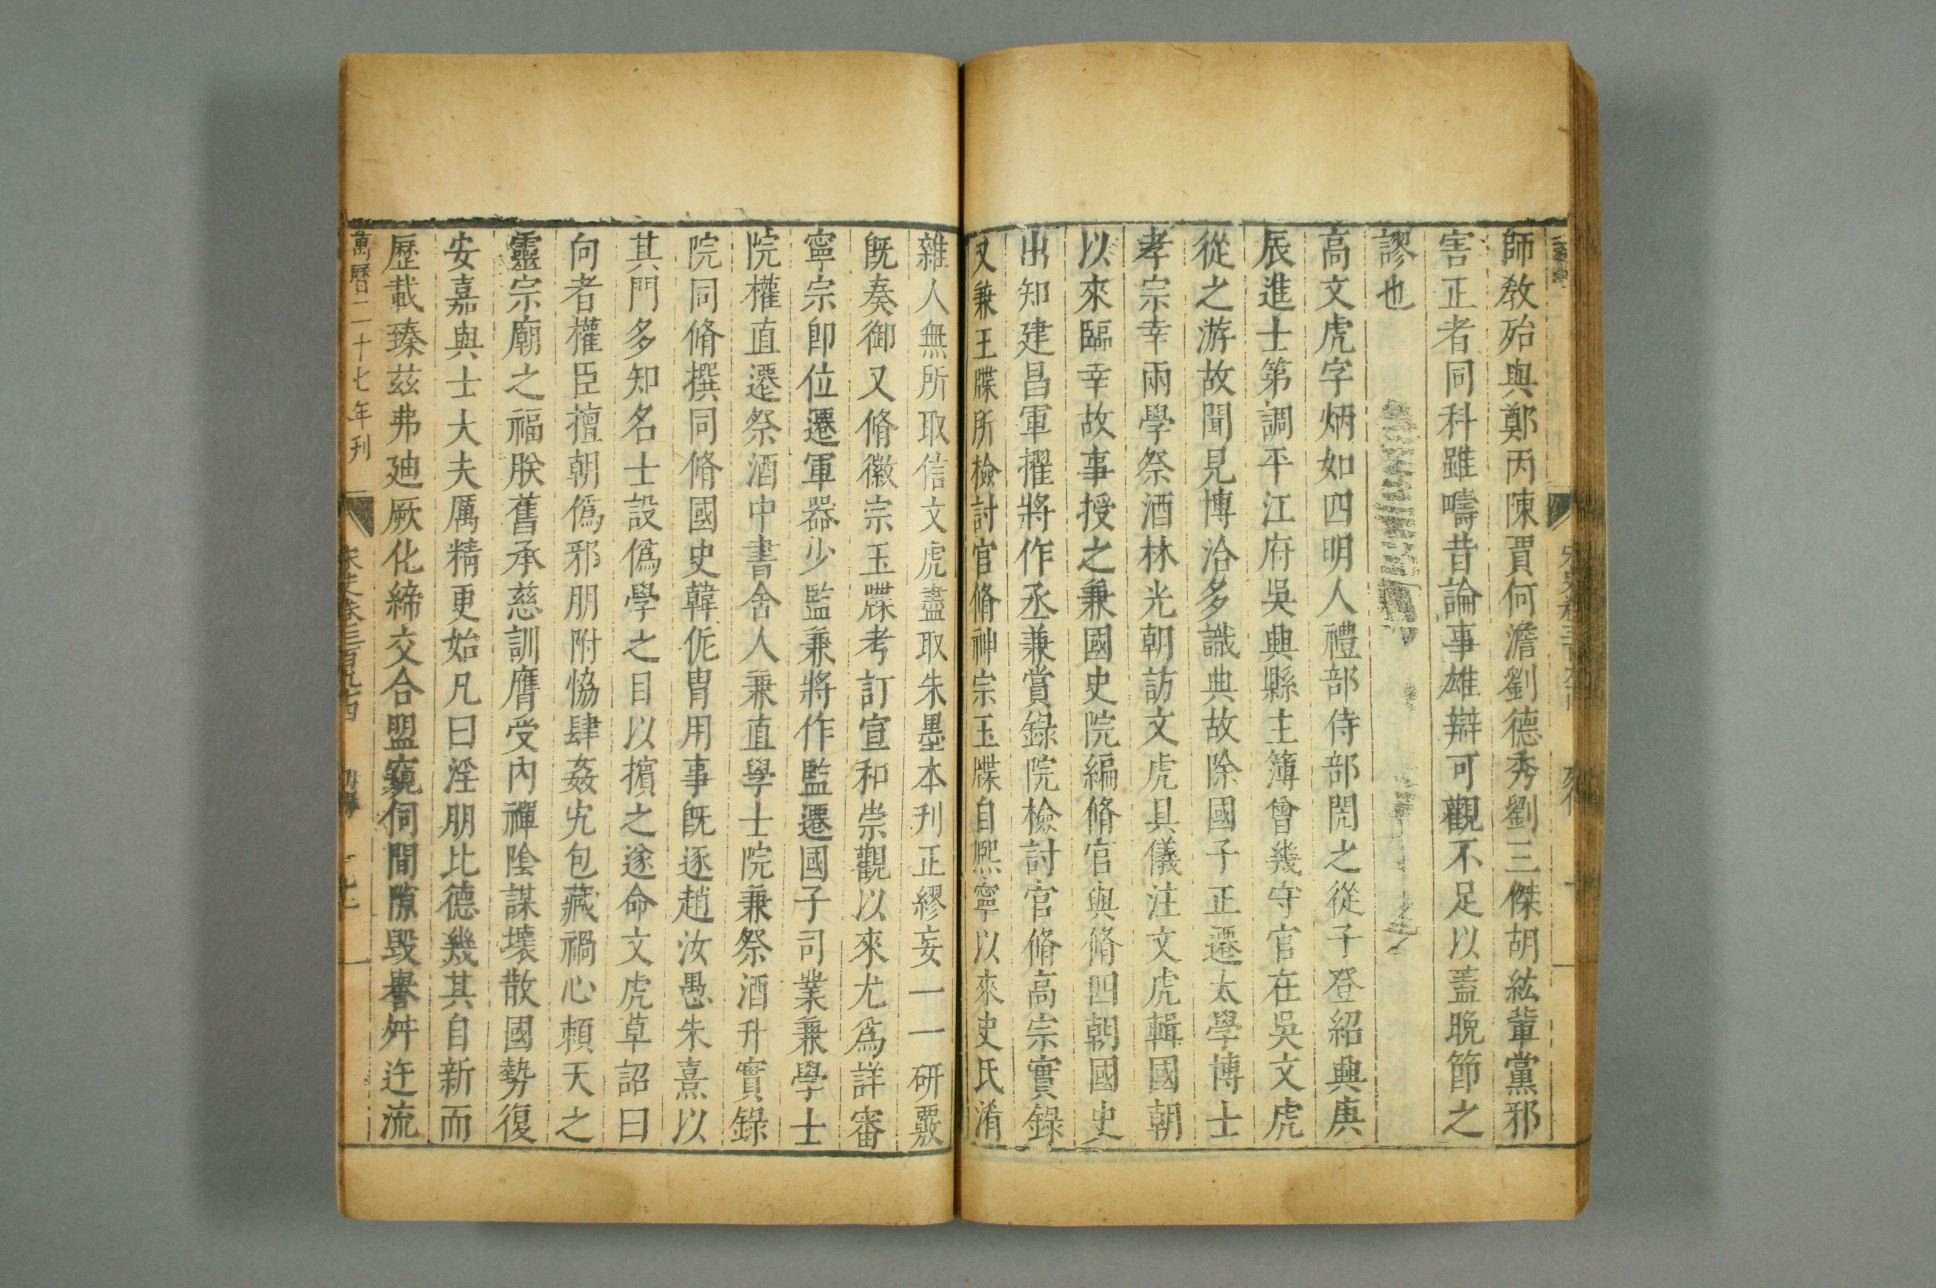 師敎殆與鄭丙陳賈何澹劉德秀劉三傑胡紘軰黨邪
害正者同科雖嚋昔論事雄辯可觀不足以蓋晚節之
謬也
高文虎字炳如四明人禮部侍郎閌之從子登紹興庚
辰進士第調平江府吳興縣主簿曾幾守官在吳文虎
從之游故聞見博洽多識典故除國子正遷太學博士
孝宗幸兩學祭酒林光朝訪文虎具儀注文虎輯國朝
以來臨幸故事授之兼國史院編脩官與脩四朝國史
出知建昌軍擢將作丞兼賞錄院檢討官脩高宗實錄
又兼王牒所檢討官脩神宗玉牒自熙寧以來史氏淆
雜人無所取信文虎盡取朱墨本刊正繆妄一一研覈
旣奏御又脩徽宗玉牒考訂宣和崇觀以來尤爲詳審
寧宗卽位遷軍器少監兼將作監遷國子司業兼學士
院權直遷祭酒中書舍人兼直學士院兼祭酒升實錄
院同脩撰同脩國史韓侂胄用事旣逐趙汝愚朱熹以
其門多知名士設僞學之目以擯之遂命文虎草詔曰
向者權臣擅朝僞邪朋附恊肆姦宄包藏禍心頼天之
靈宗廟之福朕舊承慈訓膺受內禪陰謀壞散國勢復
安嘉與士大夫厲精更始凡曰淫朋比德幾其自新而
歷載臻茲弗廸厥化締交合盟窺伺間隙毀譽舛迕流
萬曆二十七年刊
宋史卷三百九十四